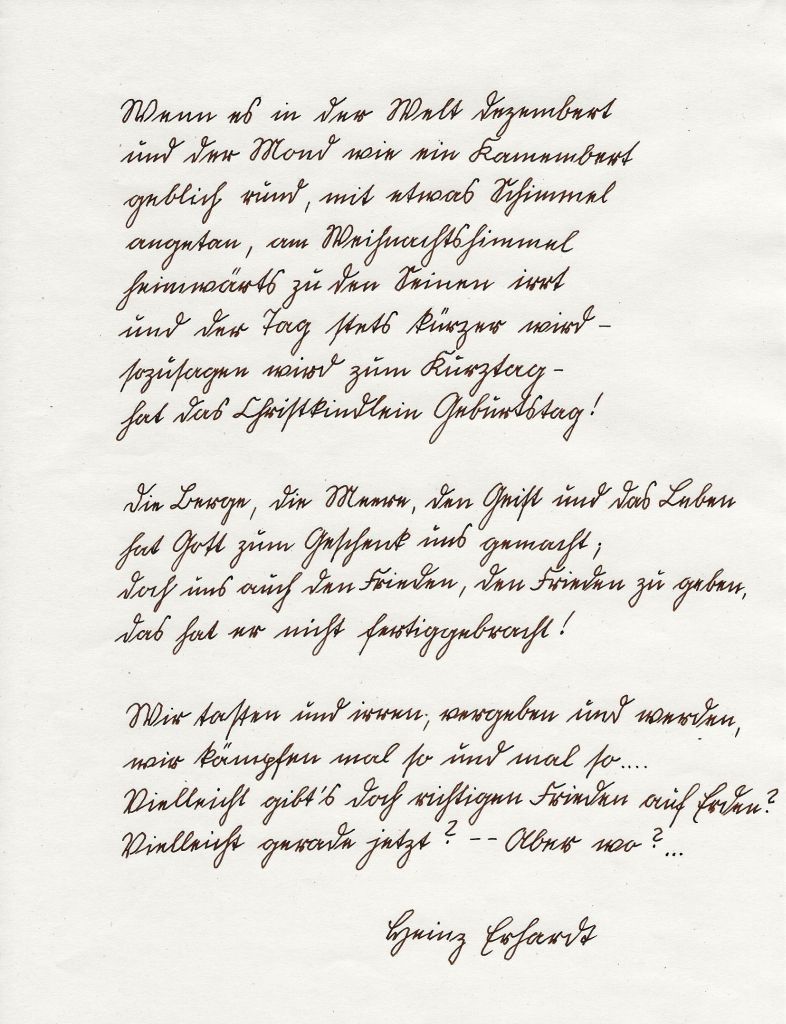 Wenn es in der Welt dezembert
und der Mond wie ein Kamembert
gelblich rund, mit etwas Schimmel
angetan, am Weihnachtshimmel
heimwärts zu den Seinen irrt
und der Tag stets kürzer wird –
sozusagen wird zum Kurztag –
hat das Christkindlein Geburtstag!
Die Berge, die Meere, den Geist und das Leben
hat Gott zum Geschenk uns gemacht;
doch uns auch den Frieden, den Frieden zu geben,
das hat er nicht fertiggebracht!
Wir tasten und irren, vergeben und werden,
wir kämpfen mal so und mal so....
Vielleicht gibt's doch richtigen Frieden auf Erden?
Vielleicht gerade jetzt? -- Aber wo?...
Heinz Erhardt